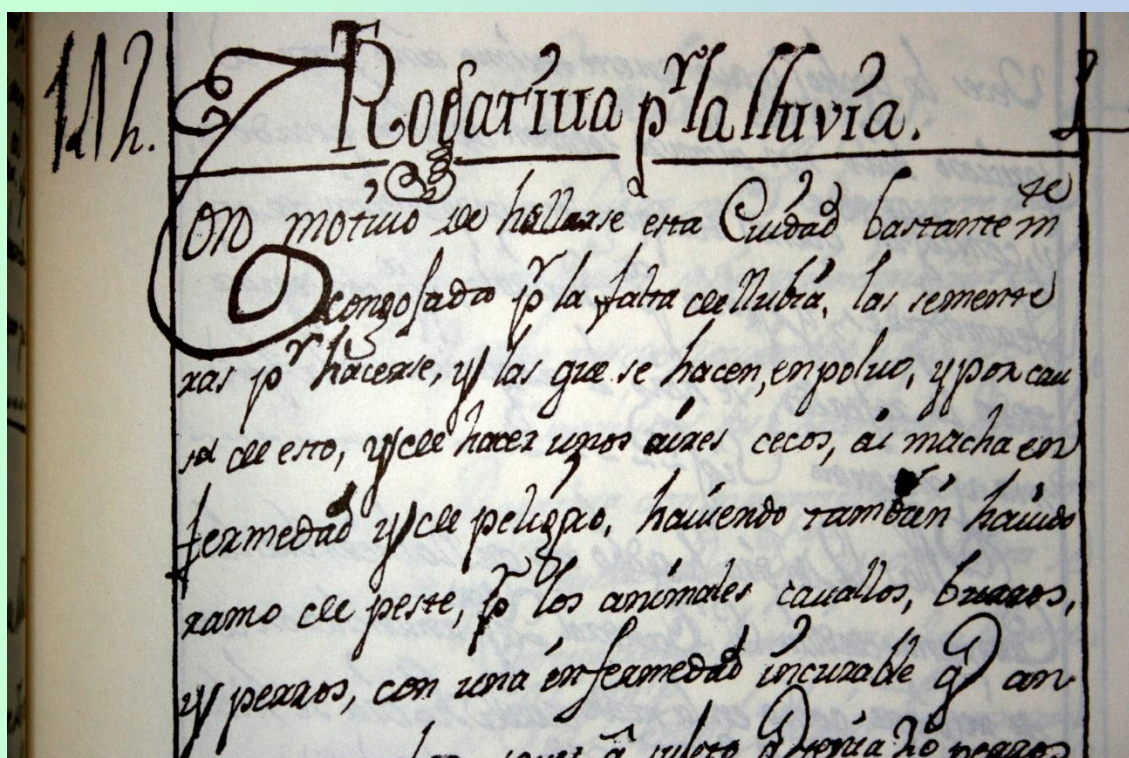 142.
Rogativa pr la lluvia.
Con motiuo de hallarse esta Ciudad bastantemte
acongojada pr la falta de llubia, las semente
ras pr hacerse, y las que se hacen, en poluo, y por cau
sa de esto, y de hacer unos aires cecos, ai mucha en
fermedad y de peligro, hauiendo tambien hauido
ramo de peste, pr los animales cauallos, burros,
y perros, con una enfermedad incurable q an
sujeto q tenia perros